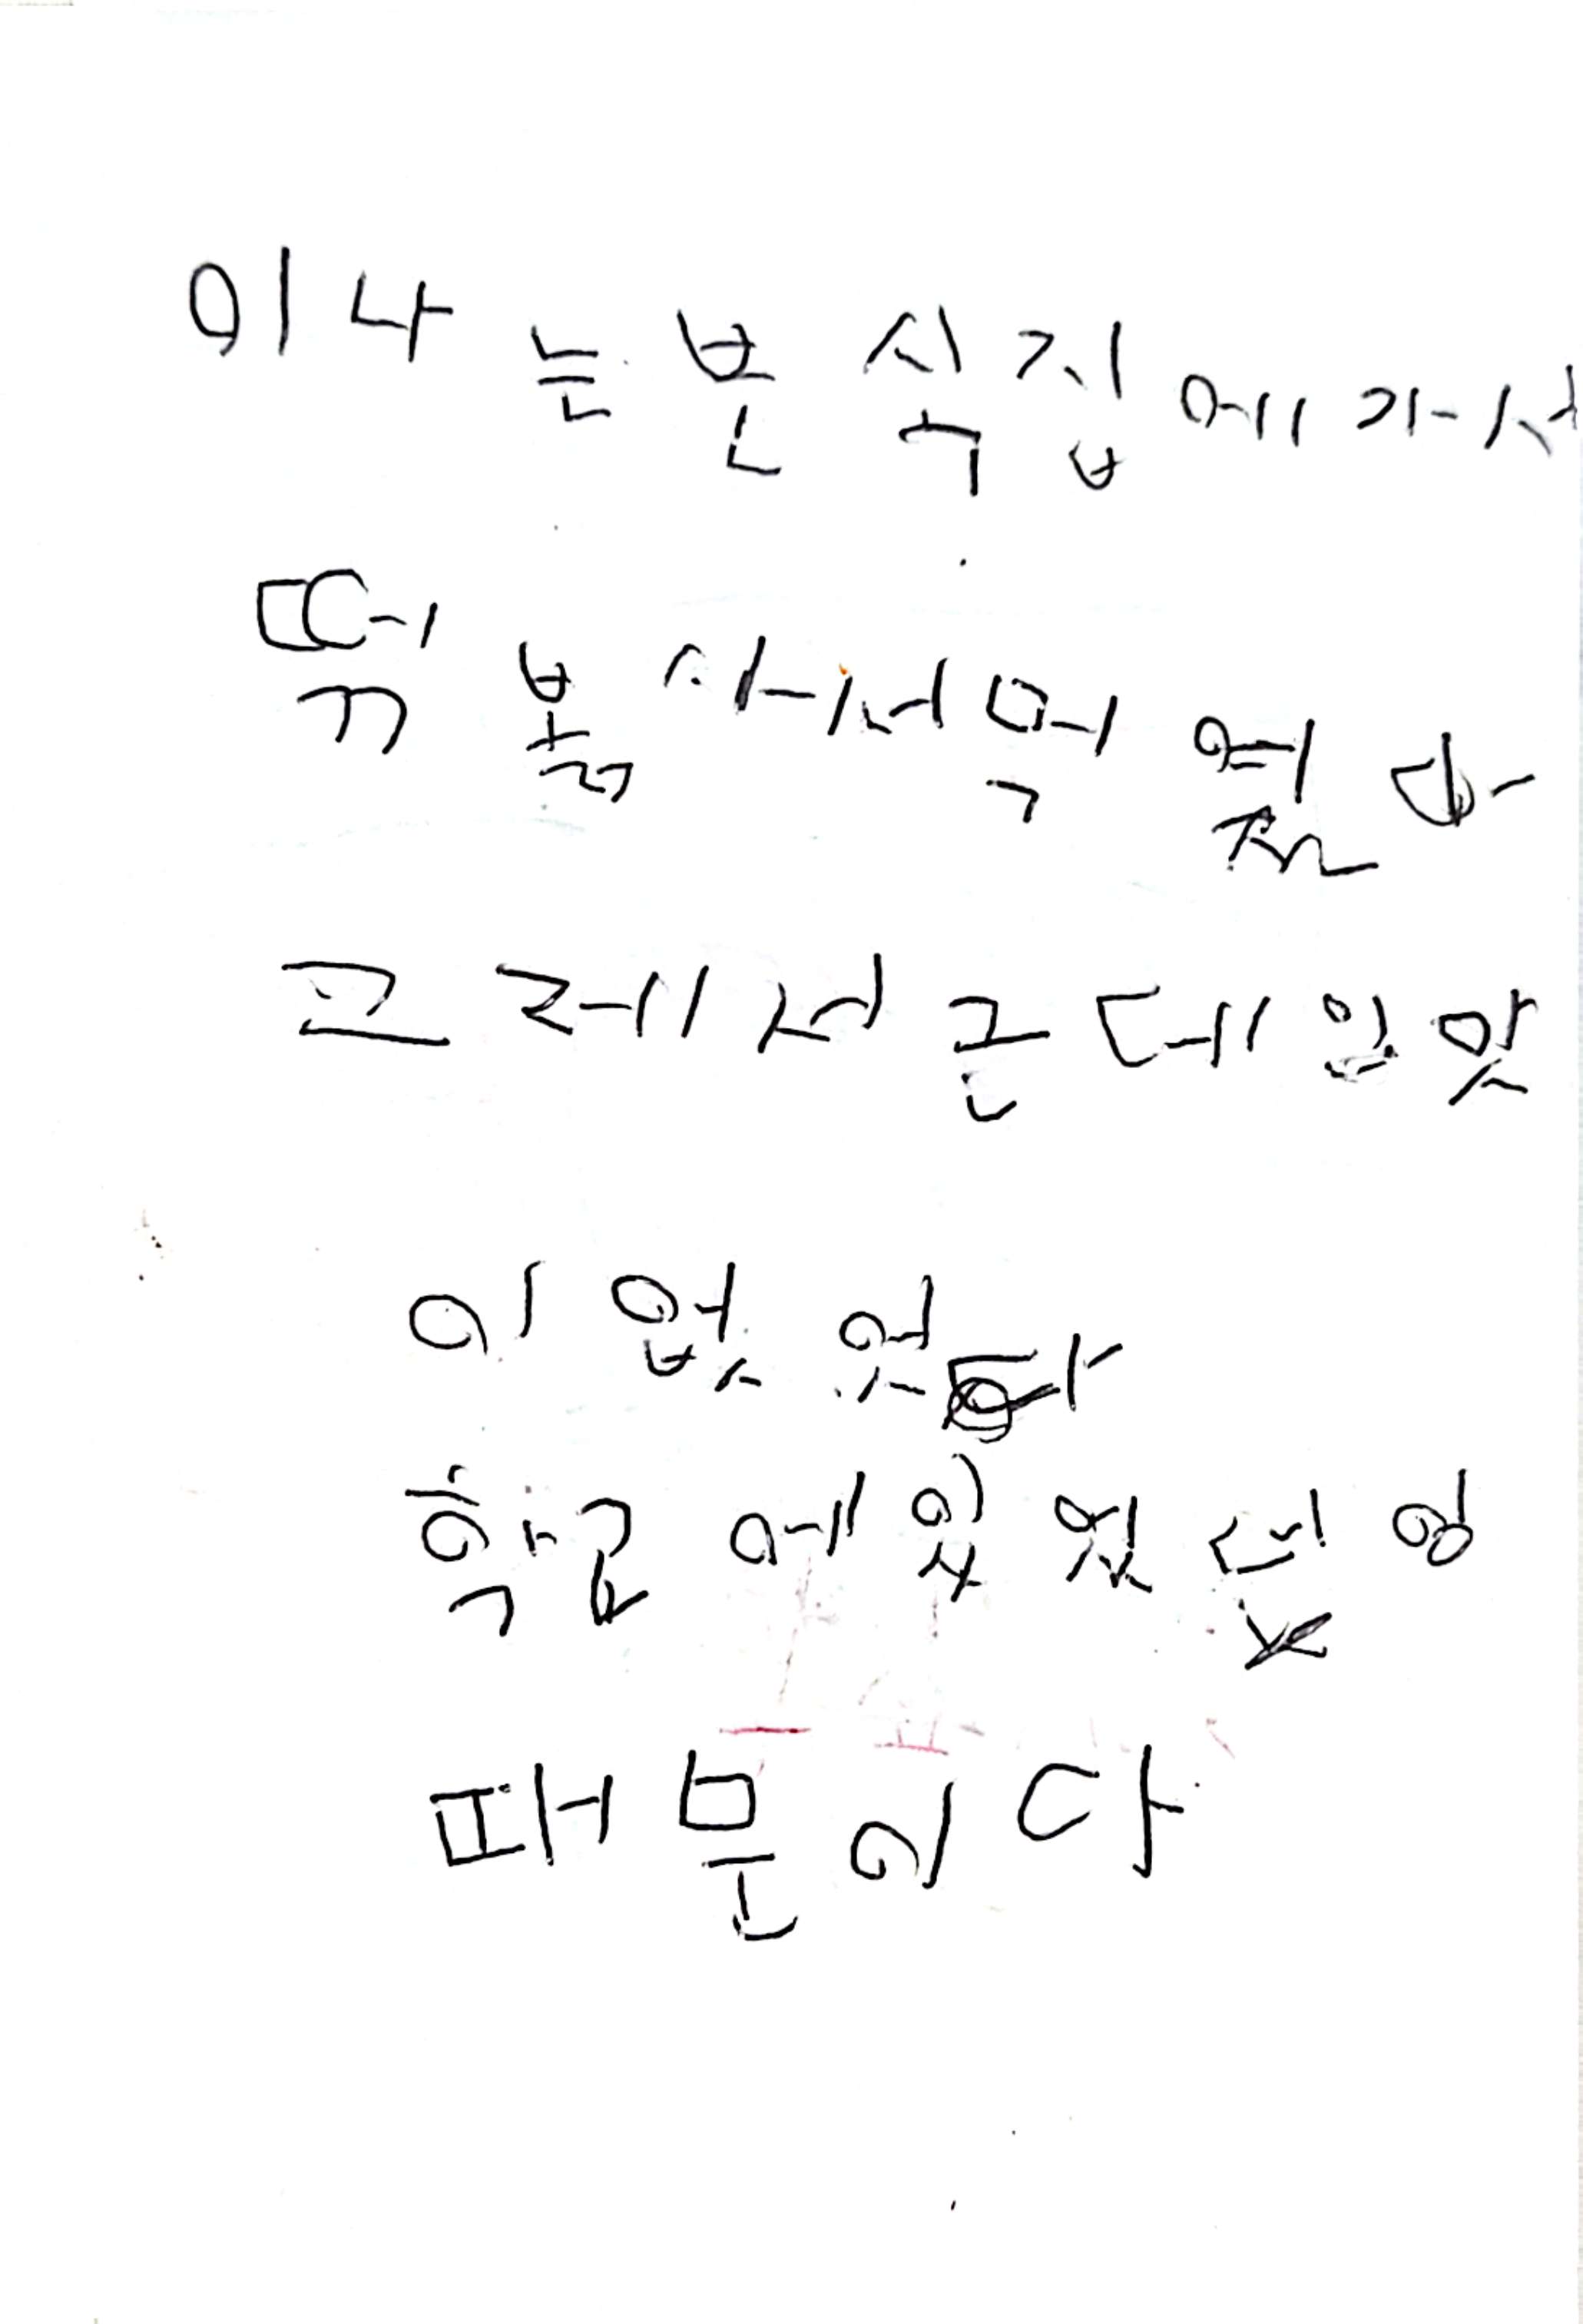 이나는 분식집에 가서
떡볶 사서 먹였다
그레서 근데 입맛
이 없었다
학교에 있었던 일
때문이다